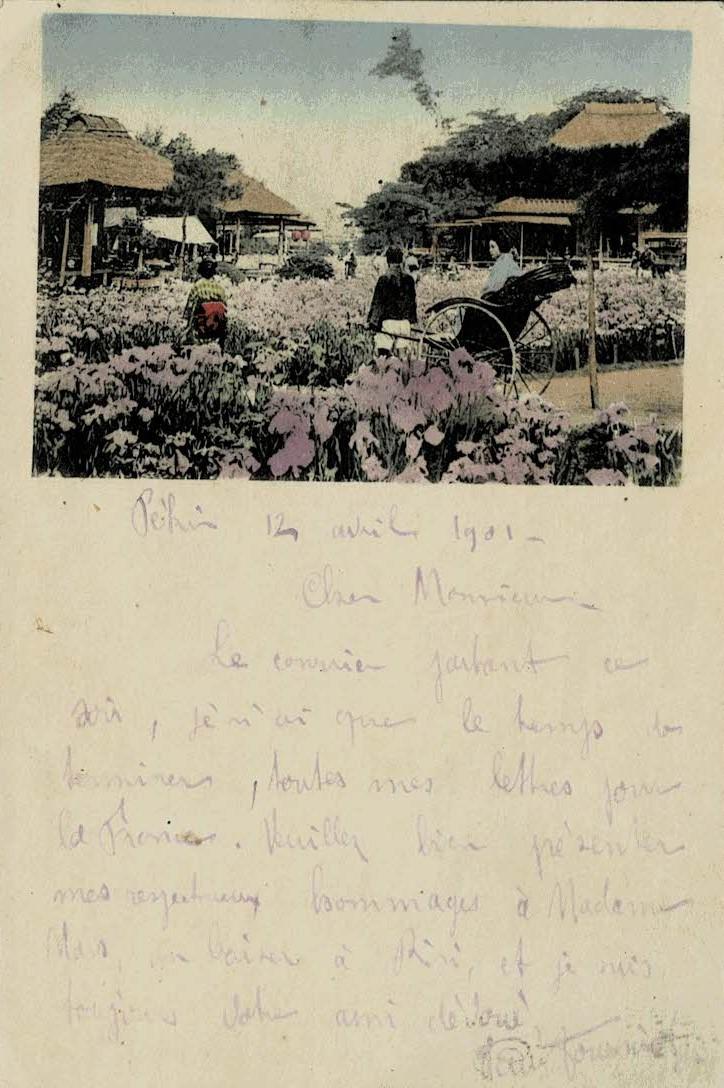 Pékin 12 avril 1901 -
Cher Monsieur
Le courrier partant ce
soir, je n'ai que le temps de
terminer, toutes mes lettres pour
la France. Veuillez bien présenter
mes respectueux hommages à Madame
un baiser à Riri, et je suis
toujours votre ami dévoué
Fournier